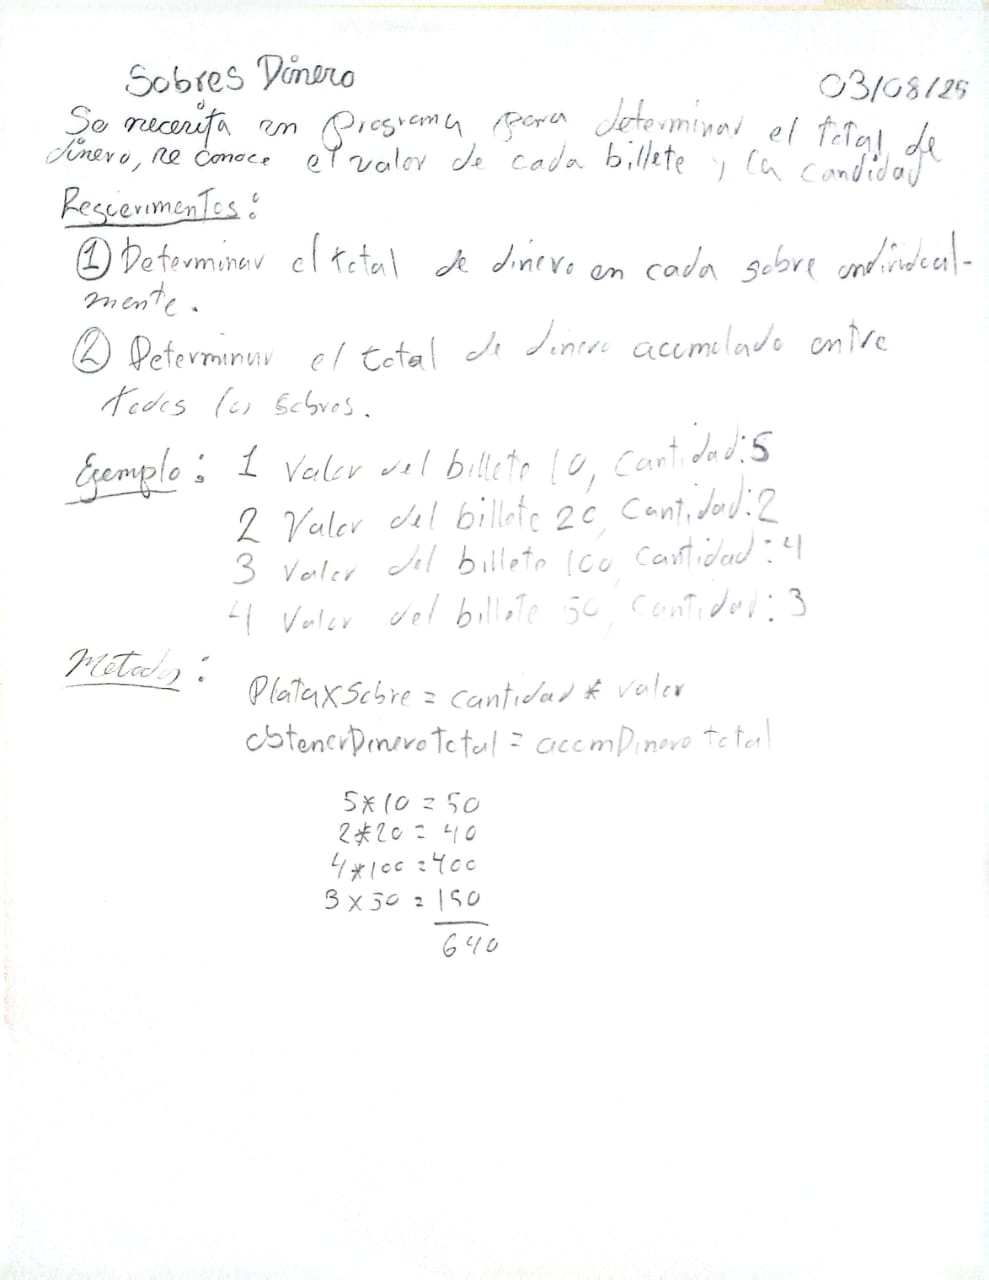 Sobres Dinero
03/08/25
Se necesita un programa para determinar el total de
dinero, se conoce el valor de cada billete y la candidad
Requerimentos:
① Determinar el total de dinero en cada sobre individual-
mente.
② Determinar el total de dinero acumulado entre
todos los sobres.
Ejemplo: 1 Valor del billete 10, Cantidad: 5
2 Valor del billete 20, Cantidad: 2
3 Valor del billete 100 Cantidad: 4
4 Valor del billete 50, Cantidad: 3
Metodos:
PlataXSobre = cantidad * valor
obtenerDineroTotal = acumDinero total
5*10 = 50
2*20 = 40
4*100 = 400
3 x 50 = 150
640